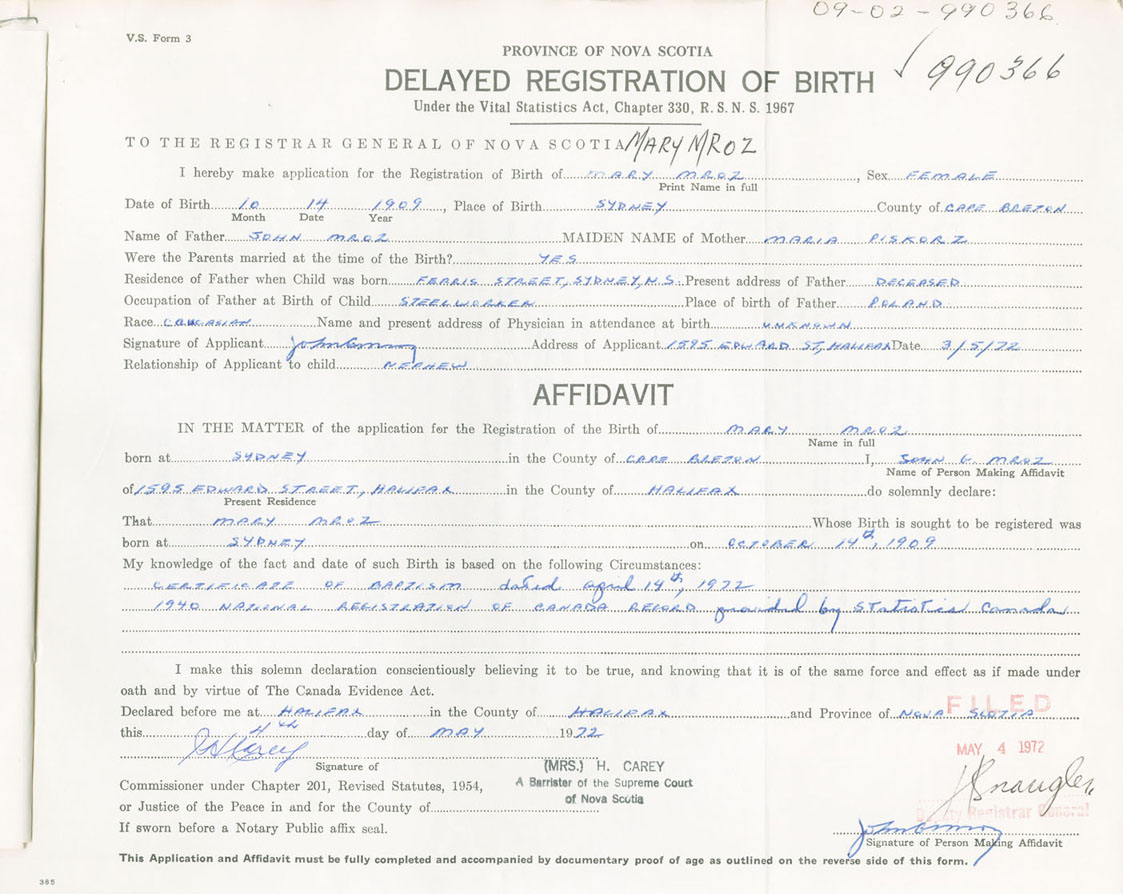 09-02-990366
V.S. Form 3
990366
PROVINCE OF NOVA SCOTIA
DELAYED REGISTRATION OF BIRTH
Under the Vital Statistics Act, Chapter 330, R. S. N. S. 1967
TO THE REGISTRAR GENERAL OF NOVA SCOTIA MARY MROZ
I hereby make application for the Registration of Birth of MARY MROZ, Sex FEMALE
Print Name in full
Date of Birth 10 14 1909, Place of Birth SYDNEY County of CAPE BRETON
Month Date Year
Name of Father JOHN MROZ MAIDEN NAME of Mother MARIA PISKORZ
Were the Parents married at the time of the Birth? YES
Residence of Father when Child was born FERRIS STREET, SYDNEY, N.S. Present address of Father DECEASED
Occupation of Father at Birth of Child STEELWORKER Place of birth of Father POLAND
Race CAUCASIAN Name and present address of Physician in attendance at birth UNKNOWN
Signature of Applicant Address of Applicant 1595 EDWARD ST, HALIFAX Date 3/5/72
Relationship of Applicant to child NEPHEW
AFFIDAVIT
IN THE MATTER of the application for the Registration of the Birth of MARY MROZ
Name in full
born at SYDNEY in the County of CAPE BRETON I, JOHN G. MROZ
Name of Person Making Affidavit
of 1595 EDWARD STREET, HALIFAX in the County of HALIFAX do solemnly declare:
Present Residence
That MARY MROZ Whose Birth is sought to be registered was
born at SYDNEY on OCTOBER 14th, 1909
My knowledge of the fact and date of such Birth is based on the following Circumstances:
CERTIFICATE OF BAPTISM dated april 14th, 1972
1940 NATIONAL REGISTRATION OF CANADA RECORD provided by Statistics Canada
I make this solemn declaration conscientiously believing it to be true, and knowing that it is of the same force and effect as if made under
oath and by virtue of The Canada Evidence Act.
Declared before me at HALIFAX in the County of HALIFAX and Province of NOVA SCOTIA
FILED
this 4th day of MAY 1972
MAY 4 1972
H Carey
Signature of
(MRS.) H. CAREY
A Barrister of the Supreme Court
of Nova Scotia
Commissioner under Chapter 201, Revised Statutes, 1954,
or Justice of the Peace in and for the County of
Deputy Registrar General
If sworn before a Notary Public affix seal.
Signature of Person Making Affidavit
This Application and Affidavit must be fully completed and accompanied by documentary proof of age as outlined on the reverse side of this form.
365